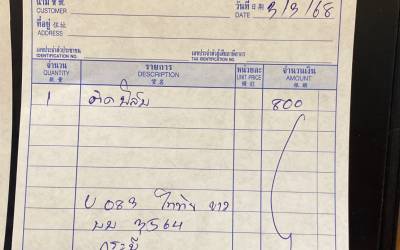 นาม 寶號
CUSTOMER
วันที่ 日期
DATE 3/3/68
ที่อยู่ 住址
ADDRESS
เลขประจำตัวประชาชน
IDENTIFICATION NO.
เลขประจำตัวผู้เสียภาษีอากร
TAX IDENTIFICATION NO.
จำนวน รายการ หน่วยละ จำนวนเงิน
QUANTITY DESCRIPTION UNIT PRICE AMOUNT
1 ติดฟิล์ม 800
บ 083 ไททัย ขาว
ผผ 3564
กระบี่